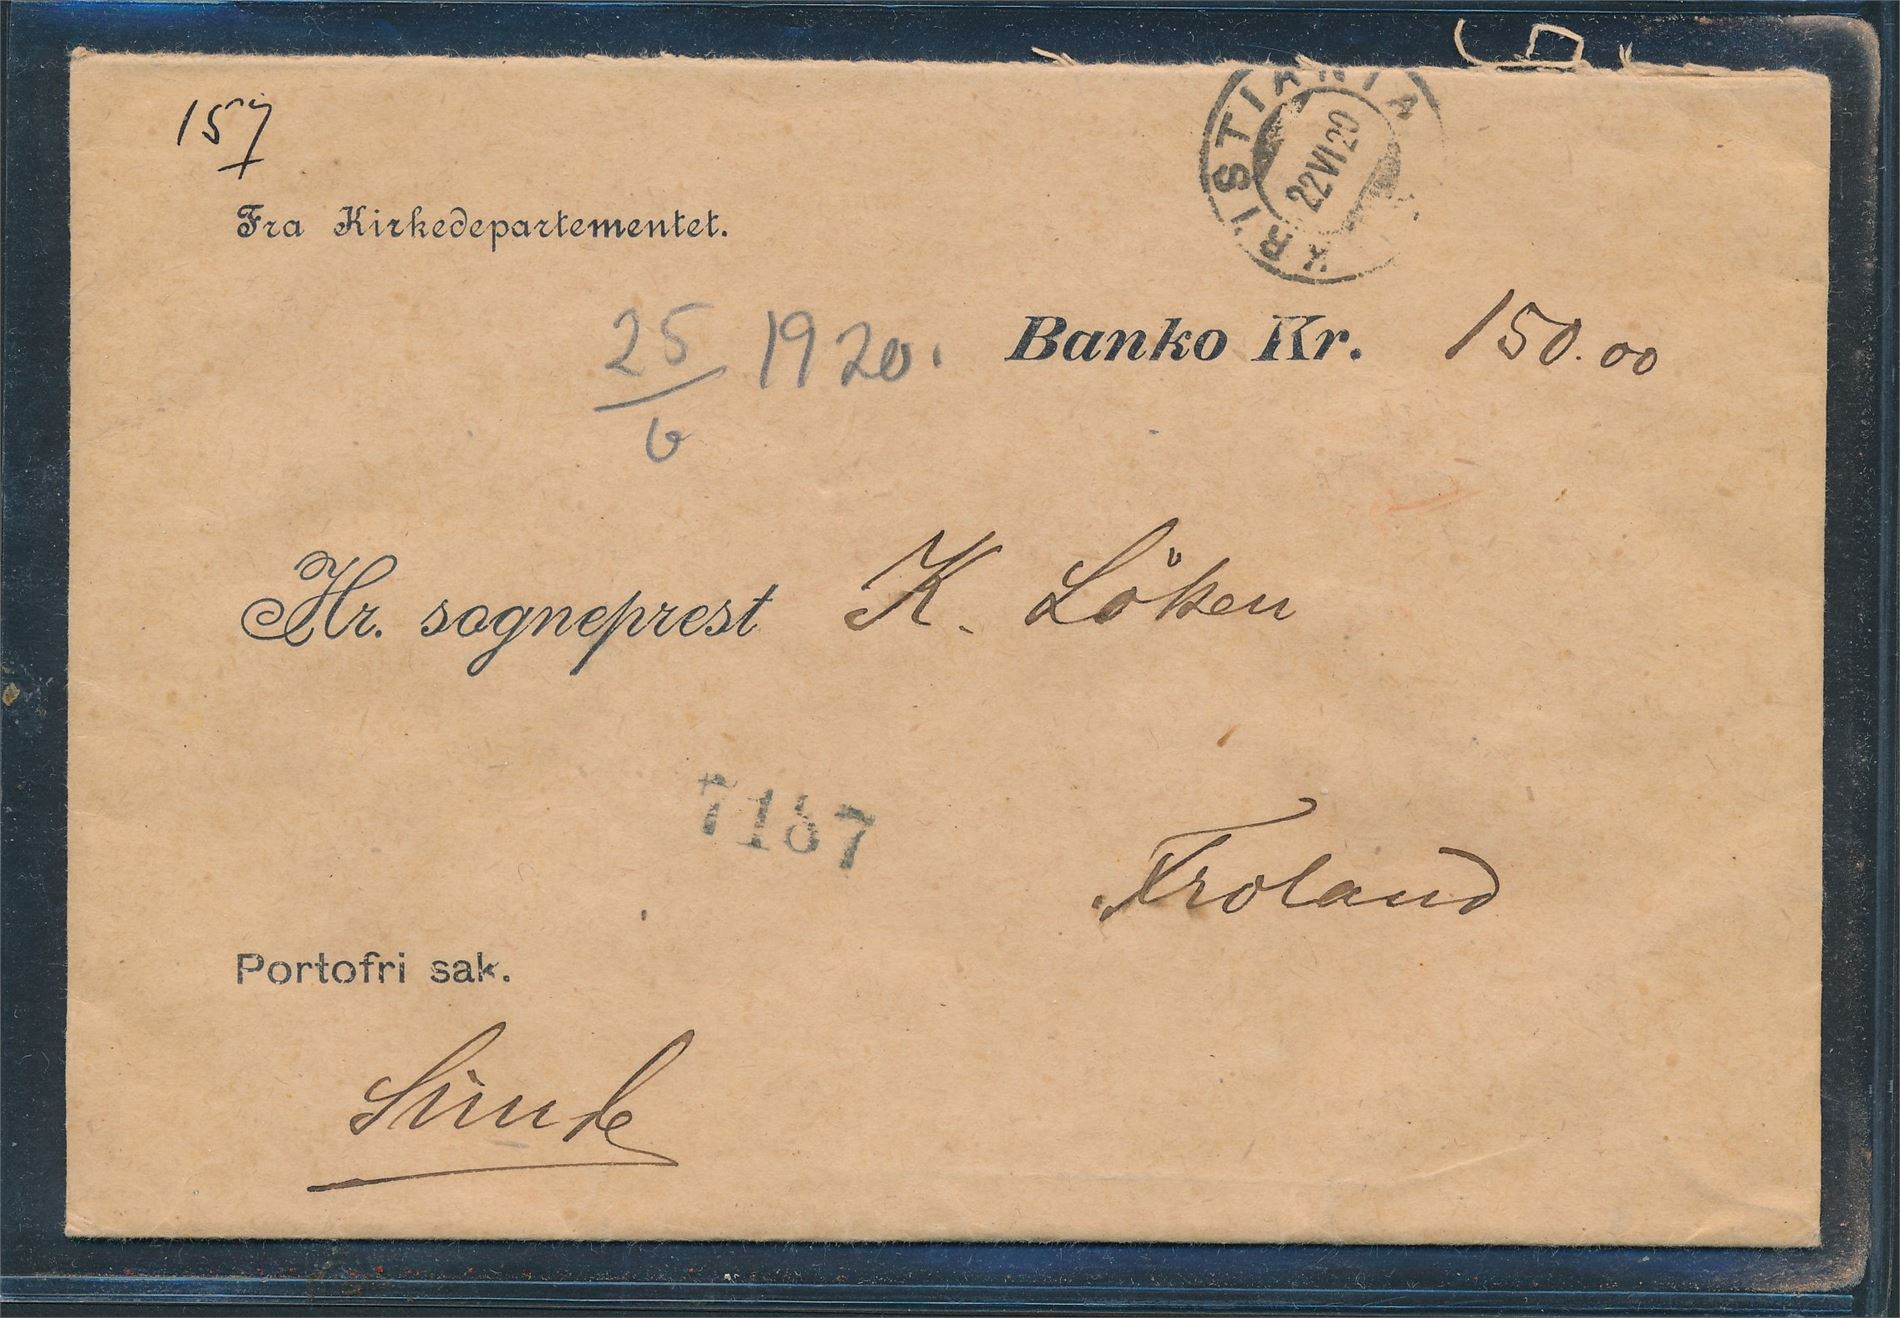 157
KRISTIANIA
22 VI 20
Fra Kirkedepartementet.
25/6 1920.
Banko Kr. 150.00
Hr. sogneprest K. Löken
7187
Froland
Portofri sak.